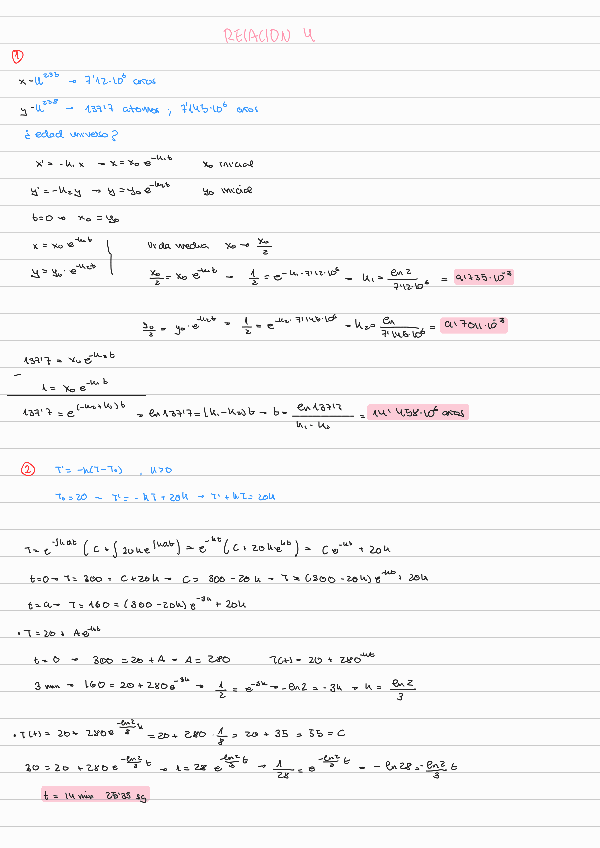 RELACION 4
①
x - U²³⁵ → 7'12·10⁶ años
y - U²³⁸ → 137'7 átomos ; 7'145·10⁶ años
¿ edad universo?
x' = -k₁ x → x = x₀ e^(-k₁t) x₀ inicial
y' = -k₂ y → y = y₀ e^(-k₂t) y₀ inicial
t=0 → x₀ = y₀
x = x₀ e^(-k₁t) Vida media x₀ → x₀/2
y = y₀ · e^(-k₂t) x₀/2 = x₀ e^(-k₁t) → 1/2 = e^(-k₁·7'12·10⁶) → k₁ = ln2/7'12·10⁶ = 9'735·10⁻⁸
y₀/2 = y₀ · e^(-k₂t) = 1/2 = e^(-k₂·7'145·10⁶) → k₂ = ln/7'145·10⁶ = 9'7011·10⁻⁸
137'7 = x₀ e^(-k₂t)
-
1 = x₀ e^(-k₁t)
137'7 = e^((-k₂+k₁)t) = ln 137'7 = (k₁-k₂)t → t = ln 137'7/k₁-k₂ = 14'458·10⁶ años
② T' = -k(T-T₀) , k>0
T₀ = 20 → T' = -kT + 20k → T' + kT = 20k
T = e^(-∫k dt) (C + ∫20k e^(∫k dt)) = e^(-kt) (C + 20k e^(kt)) = C e^(-kt) + 20k
t=0 → T = 300 = C + 20k → C = 300 - 20k → T = (300-20k) e^(-kt) + 20k
T = 160 = (300-20k) e^(-3k) + 20k
• T = 20 + A e^(-kt)
t = 0 → 300 = 20 + A → A = 280 T(t) = 20 + 280^(-kt)
3 min → 160 = 20 + 280 e^(-3k) → 1/2 = e^(-3k) → -ln2 = -3k → k = ln2/3
= 20 + 280 · 1/8 = 20 + 35 = 55 = C
30 = 20 + 280 e^(-ln2/3 t) → 1 = 28 e^(-ln2/3 t) → 1/28 = e^(-ln2/3 t) → -ln28 = -ln2/3 t
t = 14 min 25'33 sg